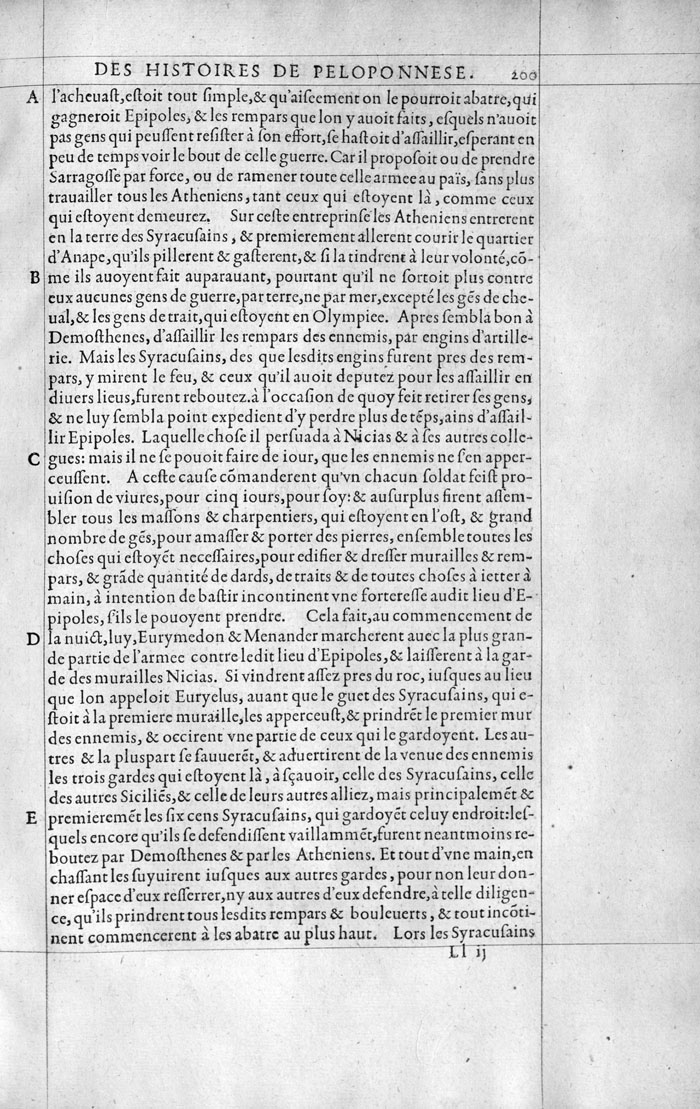 DES HISTOIRES DE PELOPONNESE. 200
A l'acheuaſt, eſtoit tout ſimple, & qu'aiſeement on le pourroit abatre, qui
gagneroit Epipoles, & les rempars que lon y auoit faits, eſquels n'auoit
pas gens qui peuſſent reſiſter à ſon effort, ſe haſtoit d'aſſaillir, eſperant en
peu de temps voir le bout de celle guerre. Car il propoſoit ou de prendre
Sarragoſſe par force, ou de ramener toute celle armee au païs, ſans plus
trauailler tous les Atheniens, tant ceux qui eſtoyent là, comme ceux
qui eſtoyent demeurez. Sur ceſte entreprinſe les Atheniens entrerent
en la terre des Syracuſains, & premierement allerent courir le quartier
d'Anape, qu'ils pillerent & gaſterent, & ſi la tindrent à leur volonté, cō-
B me ils auoyent fait auparauant, pourtant qu'il ne ſortoit plus contre
eux aucunes gens de guerre, par terre, ne par mer, excepté les gēs de che-
ual, & les gens de trait, qui eſtoyent en Olympiee. Apres ſembla bon à
Demoſthenes, d'aſſaillir les rempars des ennemis, par engins d'artille-
rie. Mais les Syracuſains, des que leſdits engins furent pres des rem-
pars, y mirent le feu, & ceux qu'il auoit deputez pour les aſſaillir en
diuers lieus, furent reboutez. à l'occaſion de quoy feit retirer ſes gens,
& ne luy ſembla point expedient d'y perdre plus de tēps, ains d'aſſail-
lir Epipoles. Laquelle choſe il perſuada à Nicias & à ſes autres colle-
C gues: mais il ne ſe pouoit faire de iour, que les ennemis ne ſ'en apper-
ceuſſent. A ceſte cauſe cōmanderent qu'vn chacun ſoldat feiſt pro-
uiſion de viures, pour cinq iours, pour ſoy: & auſurplus firent aſſem-
bler tous les maſſons & charpentiers, qui eſtoyent en l'oſt, & grand
nombre de gēs, pour amaſſer & porter des pierres, enſemble toutes les
choſes qui eſtoyēt neceſſaires, pour edifier & dreſſer murailles & rem-
pars, & grāde quantité de dards, de traits & de toutes choſes à ietter à
main, à intention de baſtir incontinent vne fortereſſe audit lieu d'E-
pipoles, ſ'ils le pouoyent prendre. Cela fait, au commencement de
D la nuict, luy, Eurymedon & Menander marcherent auec la plus gran-
de partie de l'armee contre ledit lieu d'Epipoles, & laiſſerent à la gar-
de des murailles Nicias. Si vindrent aſſez pres du roc, iuſques au lieu
que lon appeloit Euryelus, auant que le guet des Syracuſains, qui e-
ſtoit à la premiere muraille, les apperceuſt, & prindrēt le premier mur
des ennemis, & occirent vne partie de ceux qui le gardoyent. Les au-
tres & la pluspart ſe ſauuerēt, & aduertirent de la venue des ennemis
les trois gardes qui eſtoyent là, à ſçauoir, celle des Syracuſains, celle
des autres Siciliēs, & celle de leurs autres alliez, mais principalemēt &
E premieremēt les ſix cens Syracuſains, qui gardoyēt celuy endroit: leſ-
quels encore qu'ils ſe defendiſſent vaillammēt, furent neantmoins re-
boutez par Demoſthenes & par les Atheniens. Et tout d'vne main, en
chaſſant les ſuyuirent iuſques aux autres gardes, pour non leur don-
ner eſpace d'eux reſſerrer, ny aux autres d'eux defendre, à telle diligen-
ce, qu'ils prindrent tous leſdits rempars & bouleuerts, & tout incōti-
nent commencerent à les abatre au plus haut. Lors les Syracuſains
Ll ij